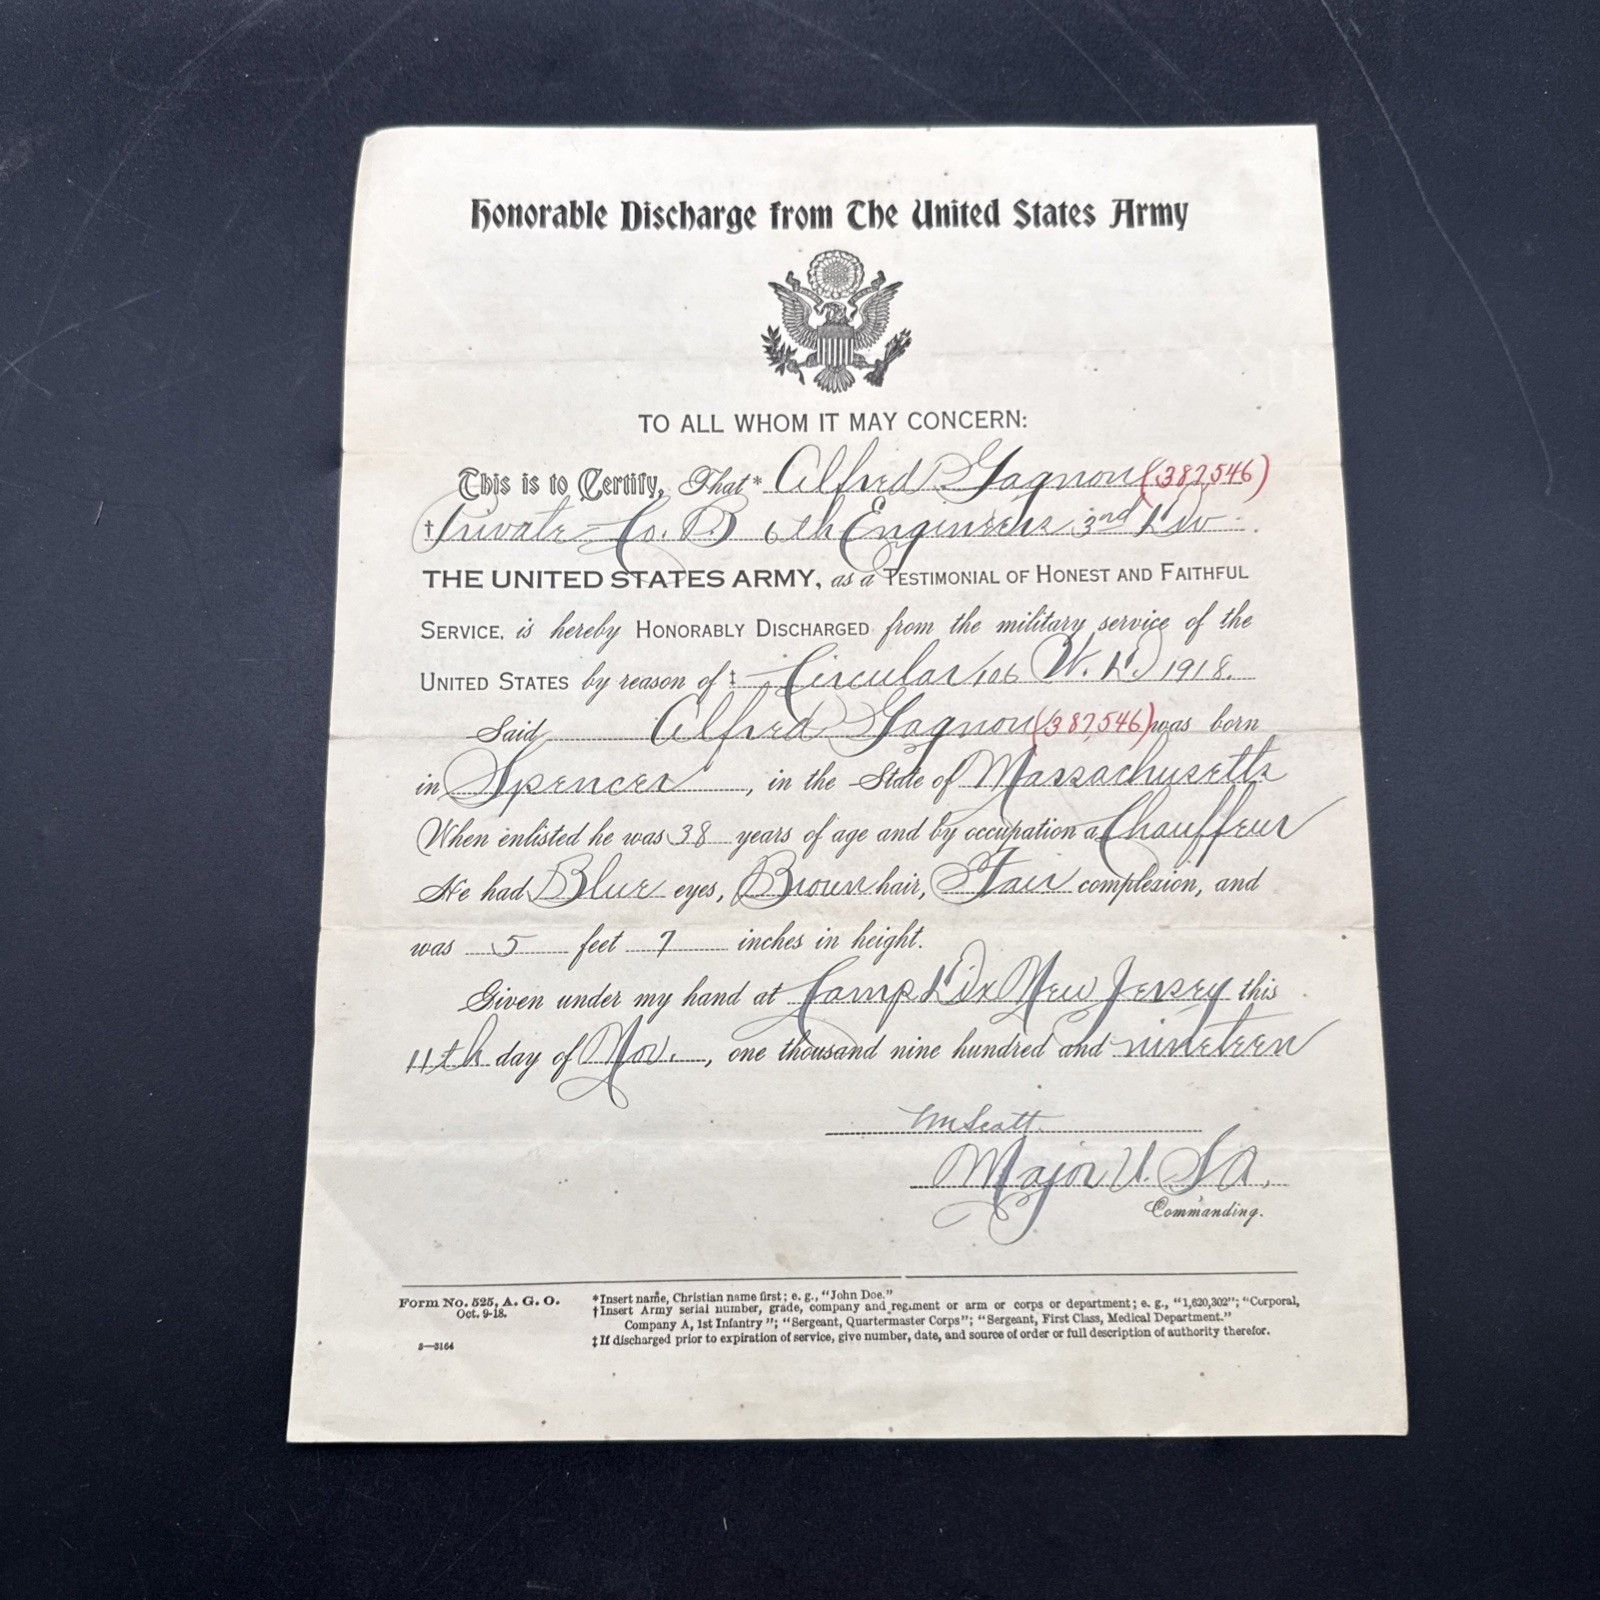 Honorable Discharge from The United States Army
TO ALL WHOM IT MAY CONCERN:
This is to Certify, That* Alfred Gagnon (387,546)
†Private Co. B 6th Engineers 3rd Div
THE UNITED STATES ARMY, as a TESTIMONIAL OF HONEST AND FAITHFUL
SERVICE, is hereby HONORABLY DISCHARGED from the military service of the
UNITED STATES by reason of ‡ Circular 106 W. D. 1918.
Said Alfred Gagnon (387,546) was born
in Spencer, in the State of Massachusetts
When enlisted he was 38 years of age and by occupation a Chauffeur
He had Blue eyes, Brown hair, Fair complexion, and
was 5 feet 7 inches in height.
Given under my hand at Camp Dix New Jersey this
11th day of Nov., one thousand nine hundred and nineteen
Scott
Major U. S. A.
Commanding.
Form No. 525, A. G. O.
Oct. 9-18.
3—3164
*Insert name, Christian name first; e. g., "John Doe."
†Insert Army serial number, grade, company and regiment or arm or corps or department; e. g., "1,620,302"; "Corporal,
Company A, 1st Infantry"; "Sergeant, Quartermaster Corps"; "Sergeant, First Class, Medical Department."
‡If discharged prior to expiration of service, give number, date, and source of order or full description of authority therefor.